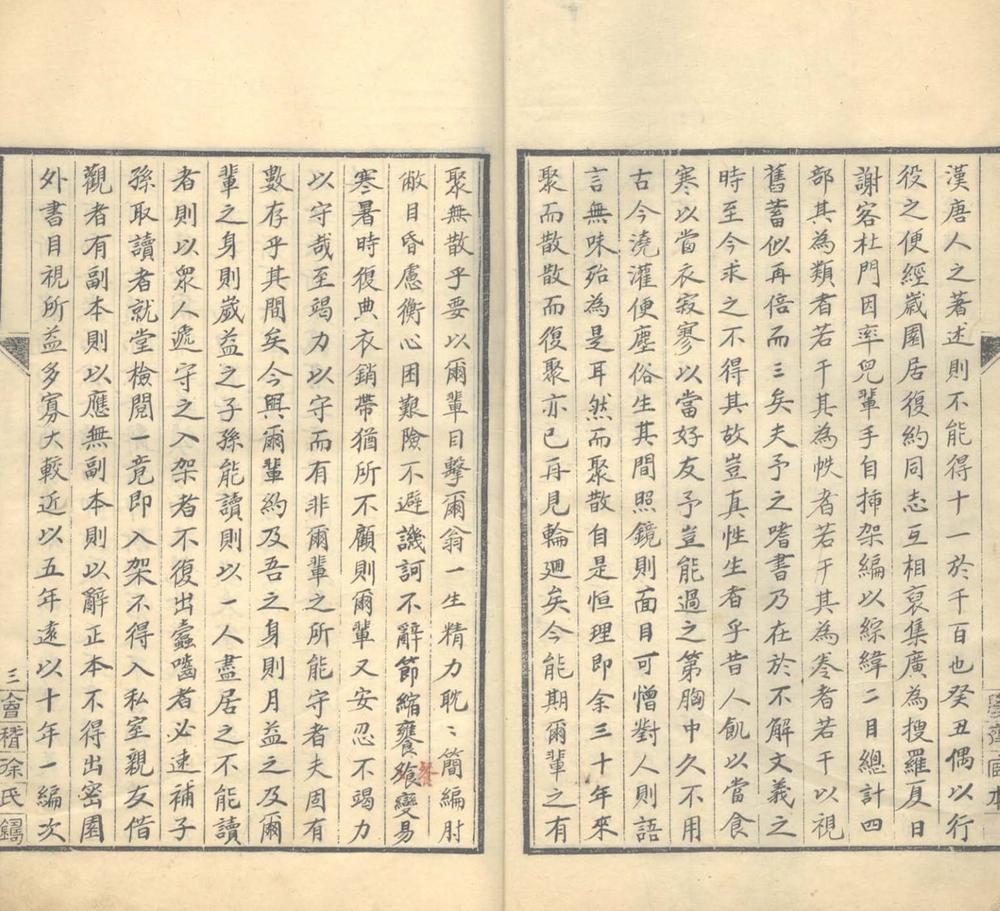 漢唐人之著述則不能得十一於千百也癸丑偶以行
役之便經嵗園居復約同志互相裒集廣為搜羅夏日
謝客杜門因率兒輩手自揷架編以綜緯二目總計四
部其為類者若干其為帙者若干其為卷者若干以視
舊蓄似再倍而三矣夫予之嗜書乃在於不解文義之
時至今求之不得其故豈真性生者乎昔人飢以當食
寒以當衣寂寥以當好友予豈能過之第胸中久不用
古今澆灌便塵俗生其間照鏡則面目可憎對人則語
言無味殆為是耳然而聚散自是恒理即余三十年來
聚而散散而復聚亦已再見輪廻矣今能期爾輩之有
聚無散乎要以爾輩目擊爾翁一生精力耽〻簡編肘
敝目昏慮衡心困艱險不避譏訶不辭節縮饔飱變易
餐
寒暑時復典衣銷帶猶所不顧則爾輩又安忍不竭力
以守哉至竭力以守而有非爾輩之所能守者夫固有
數存乎其間矣今與爾輩約及吾之身則月益之及爾
輩之身則嵗益之子孫能讀則以一人盡居之不能讀
者則以眾人遞守之入架者不復出蠹嚙者必速補子
孫取讀者就堂檢閱一竟即入架不得入私室親友借
觀者有副本則以應無副本則以辭正本不得出密園
外書目視所益多寡大較近以五年遠以十年一編次
三
會稽徐氏鑄
學齋
本